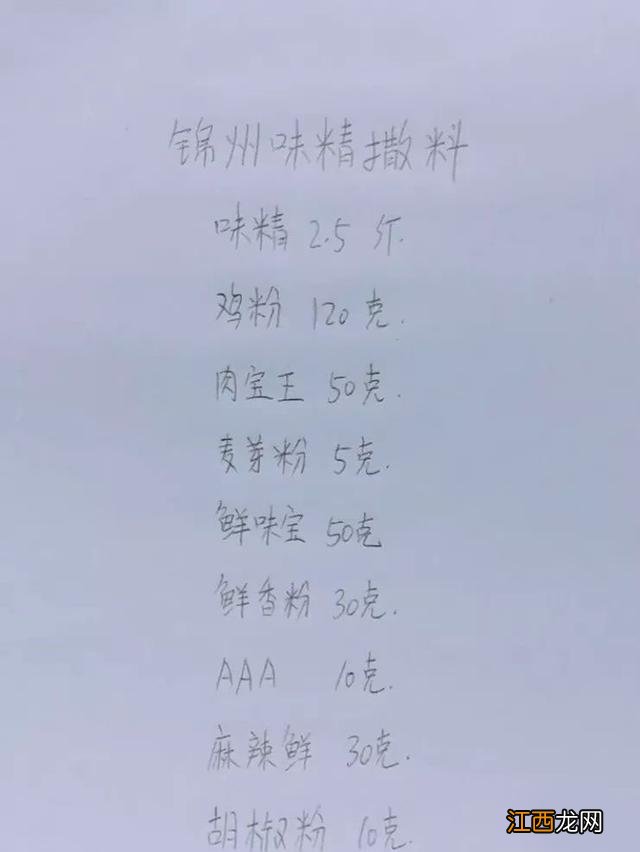 锦州味精撒料
味精 2.5 斤.
鸡粉 120克.
肉宝王 50克.
麦芽粉 5克.
鲜味宝 50克
鲜香粉 30克.
AAA 10克.
麻辣鲜 30克.
胡椒粉 10克.
江西龙网